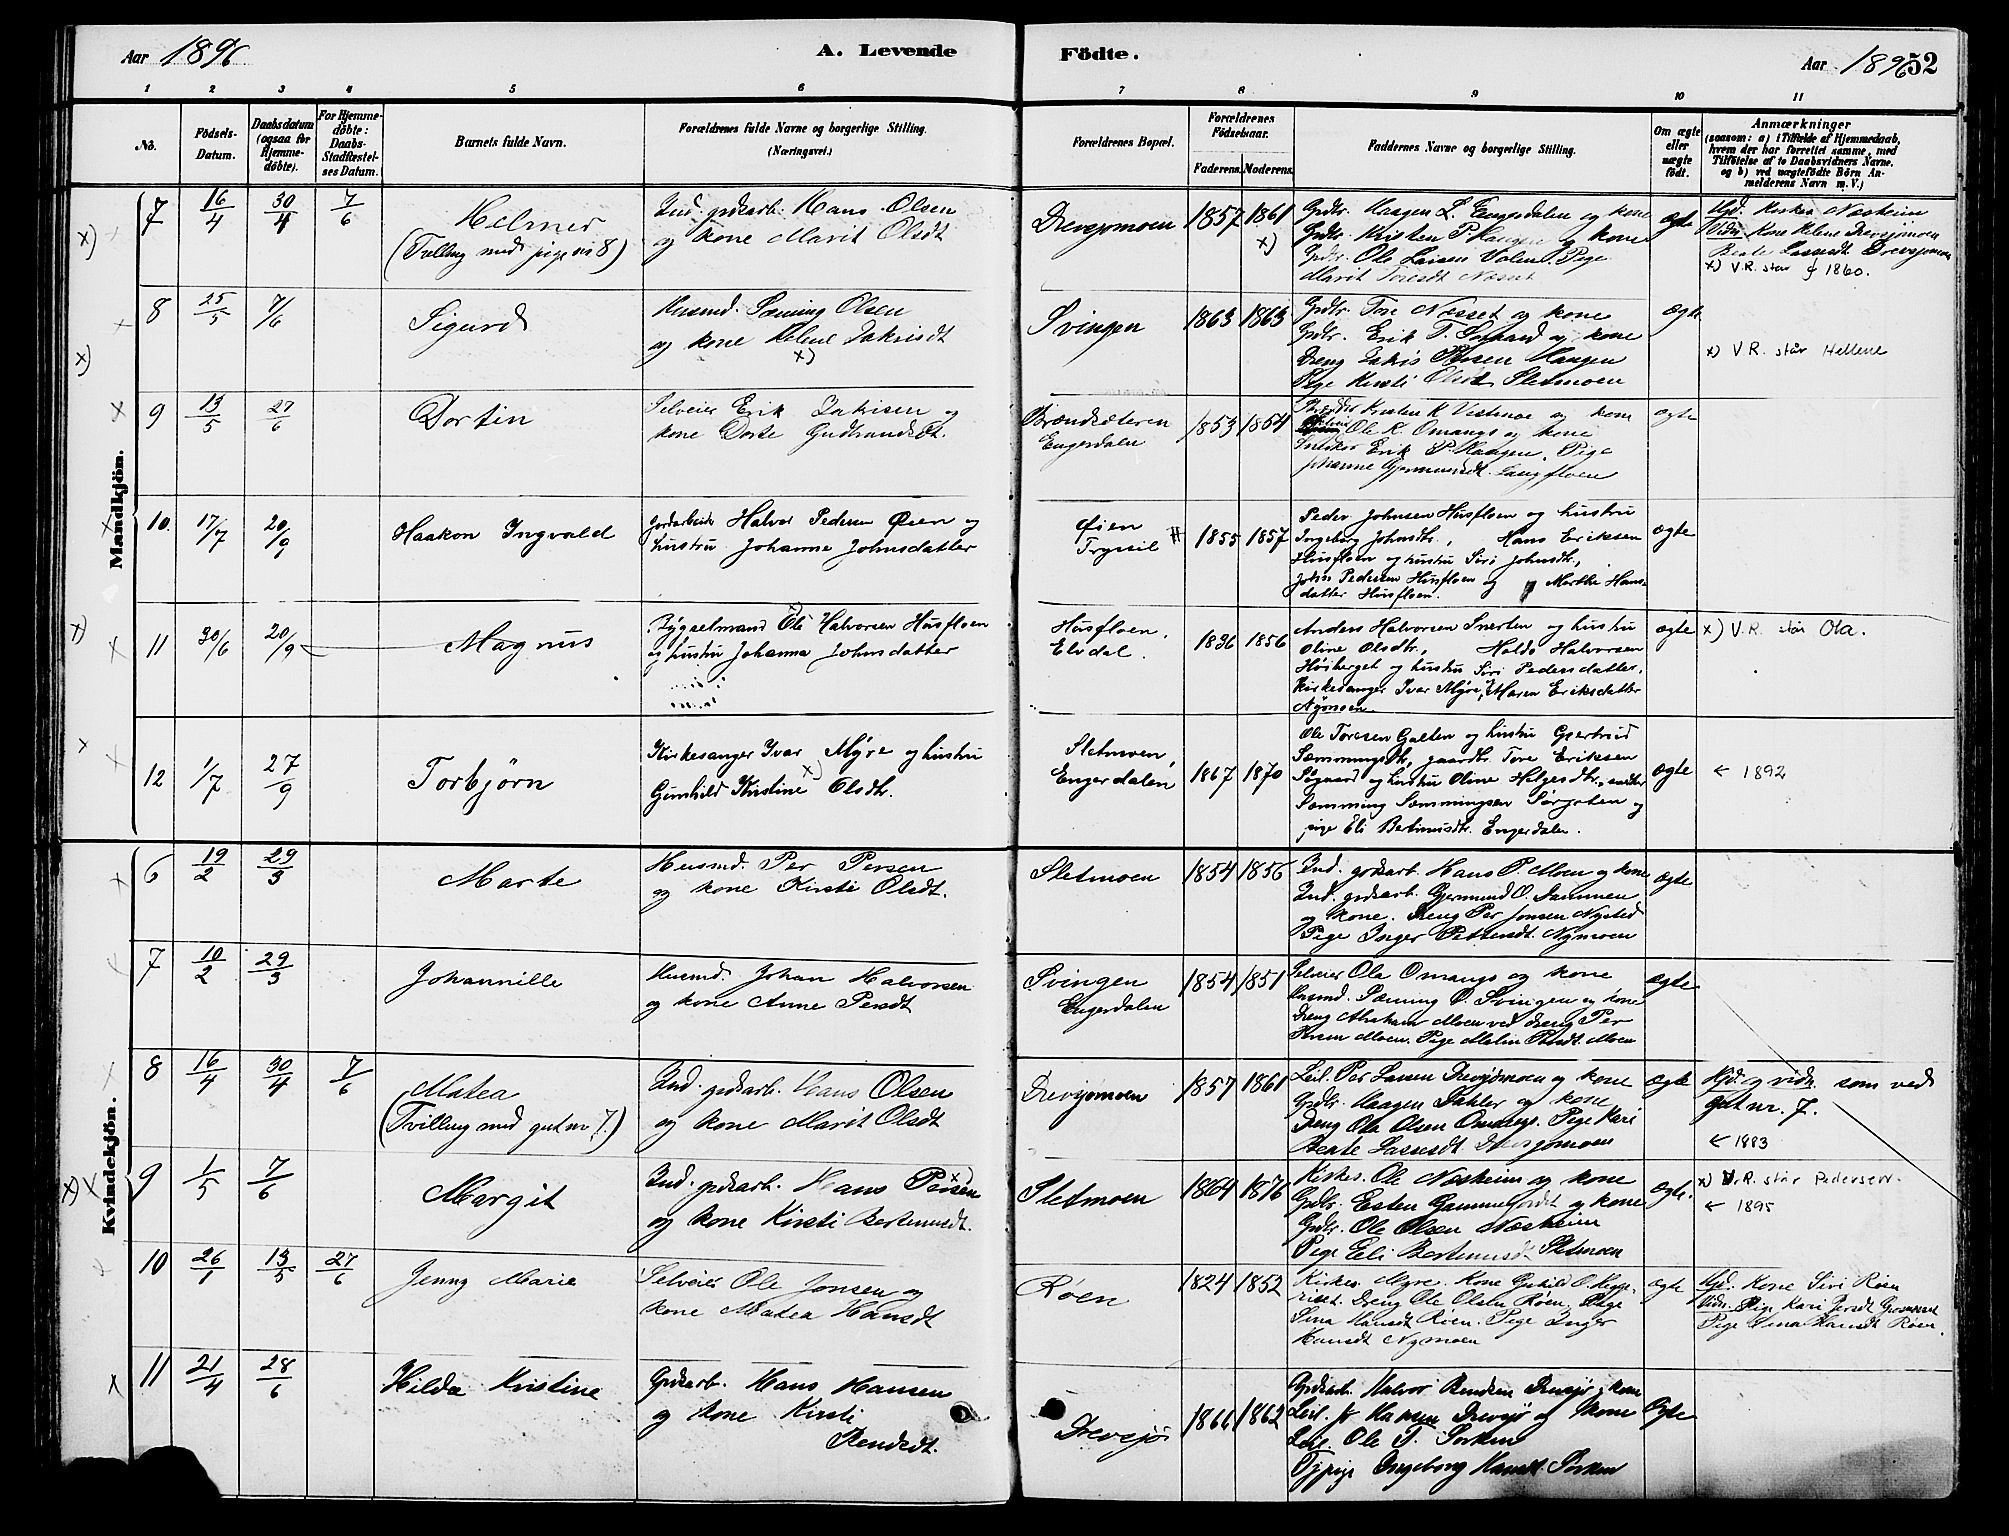 Aar 1896 A. Levende Födte. Aar 1896 52
1 2 3 4 5 6 7 8 9 10 11
No. Födsels-Datum. Daabsdatum (ogsaa for Hjemmedöbte). For Hjemmedöbte: Daabs-Stadfæstelses Datum. Barnets fulde Navn. Forældrenes fulde Navne og borgerlige Stilling. (Næringsvei.) Forældrenes Bopæl. Forældrenes Födselsaar. Faderens. Moderens. Faddernes Navne og borgerlige Stilling. Om ægte eller uægte födt. Anmærkninger (saasom: a) i Tilfælde af Hjemmedaab, hvem der har forrettet samme, med Tilföielse af to Daabsvidners Navne. og b) ved uægtefödte Börn Anmelderens Navn m. V.)
Mandkjön.
7 16/4 30/4 7/6 Helmer
(Tvilling med pige nr 8)
Ind. grdsarb. Hans Olsen
og kone Marit Olsdt
Drevsjømoen 1857 1861 x)
Grdbr. Haagen L. Engerdalen og kone
Grdbr. Kristen P. Haagen og kone
Grdbr. Ole Larsen Valen. Pige
Marit Toresdt Næsset
ægte
Vidn. Kone Helene Drevsjømoen
Beate Lassesdt. Drevsjømoen
x) V.R. står f 1860.
8 25/5 7/6 Sigurd
Husmd. Sæming Olsen
og kone Helene Jakrisdt
x)
Svingen 1863 1863
Grdbr. Tore Næsset og kone
Grdbr. Erik T. Søgaard og kone
Dreng Haagen
Pige Kirsti Olsdt Sletmoen
ægte
x) V.R. står Hellene
9 13/5 27/6 Dortin
Selveier Erik Jakisen og
kone Dorte Gudbrandsdt.
Brændsæteren
Engerdalen
1853 1854
Kristen K Vestmoe og kone
Ole K. Omangs og kone
Snedker Erik P. Haagen. Pige
Johanne Gjermundsdt. Langfloen
ægte
10. 17/7 20/9 Haakon Ingvald
Jordarbeider Halvor Pedersen Øien og
hustru Johanne Johnsdatter
Øien
Trysil
1855 1857
Peder Johnsen Husfloen og hustru
Ingeborg Johnsdtr., Hans Eriksen
Husfloen og hustru Siri Johnsdtr,
John Pedersen Husfloen og Marthe Hans-
datter Husfloen.
ægte
11 30/6 20/9 Magnus
Bygselmand Ole x) Halvorsen Husfloen
og hustru Johanna Johnsdatter
Husfloen,
Elvdal.
1836 1856
Anders Halvorsen Snerten og hustru
Oline Olsdtr, Haldo Halvorsen
Høsberget og hustru Siri Pedersdatter,
Kirkesanger Ivar Myre, Maren Eriksdatter
ægte
x) V.R. står Ola.
12 1/7 27/9 Torbjørn
Kirkesanger Ivar Myre og hustru
Gunhild Kirstine x) Olsdtr.
Sletmoen,
Engerdalen
1867 1870
Ole Toresen Galten og hustru Gjertrud
Sæmmingsdtr, gaardbr. Tore Eriksen
Søgaard og hustru Oline Helgesdtr,
Sæmming Sæmmingsen Sørgaten og
pige Eli Bertinusdtr. Engerdalen.
ægte
← 1892
Kvindekjön.
6 19/2 29/3 Marte
Husmd. Per Persen
og kone Kirsti Olsdt.
Sletmoen 1854 1856
Ind. grdsarb. Hans P. Moen og kone
Ind. grdsarb. Gjermund O. Sammen
og kone. Dreng Per Jonsen Nysted
Pige Inger Pettersdt. Nymoen
ægte
7 10/2 29/3 Johannille
Husmd. Johan Halvorsen
og kone Anne Persdt
Svingen
Engerdalen
1854 1851
Selveier Ola Omangs og kone
Husmd. Sæming O. Svingen og kone
Dreng Abraham Moen ved dreng Per
Moen. Pige Malin Persdt Moen
ægte
8 16/4 30/4 7/6 Matea
(Tvilling med gut nr 7.)
Ind. grdsarb. Hans Olsen
og kone Marit Olsdt
Drevsjømoen 1857 1861
Leil. Per Larsen Drevsjømoen og kone
Grdbr. Haagen Dahler og kone
Dreng Ola Olsen Omangs. Pige Kari
Beate Lassesdt Drevsjømoen
ægte
Hjd. og vidn. som ved
gut nr. 7.
← 1883
9 1/5 7/6 Margit
Ind. grdsarb. Hans Persen x)
og kone Kirsti Bertinusdt.
Sletmoen 1864 1876
Kirkes. Ole Næsheim og kone
Grdbr. Esten Gammelgordet og kone
Grdbr. Ole Olsen Næsheim
Pige Eli Bertinusdt Sletmoen
ægte.
x) V.R. står Pedersen.
← 1895
10 26/1 13/5 27/6 Jenny Marie
Selveier Ole Jonsen og
kone Matea Hansdt
Røen 1824 1852
Kirkes. Myre. Kone Gunhild O.
Dreng Ole Olsen Røen. Pige
Sina Hansdt Røen. Pige Inger
Hansdt Nymoen
ægte
Hjd. Kone Siri Røen
Vidn. Pige Kari Persdt
Pige Sina Hansdt Røen.
11 21/4 28/6 Hilda Kristine
Grdsarb. Hans Hansen
og kone Kirsti
Bendsdt.
Drevsjø 1866 1862
Grdsarb. Halvor Bendsen Drevsjø, kone
Leil. Hansen Drevsjø og kone
Leil. Ole T. Sorken
Tjpige Ingeborg Hansdt. Sorken
Ægte